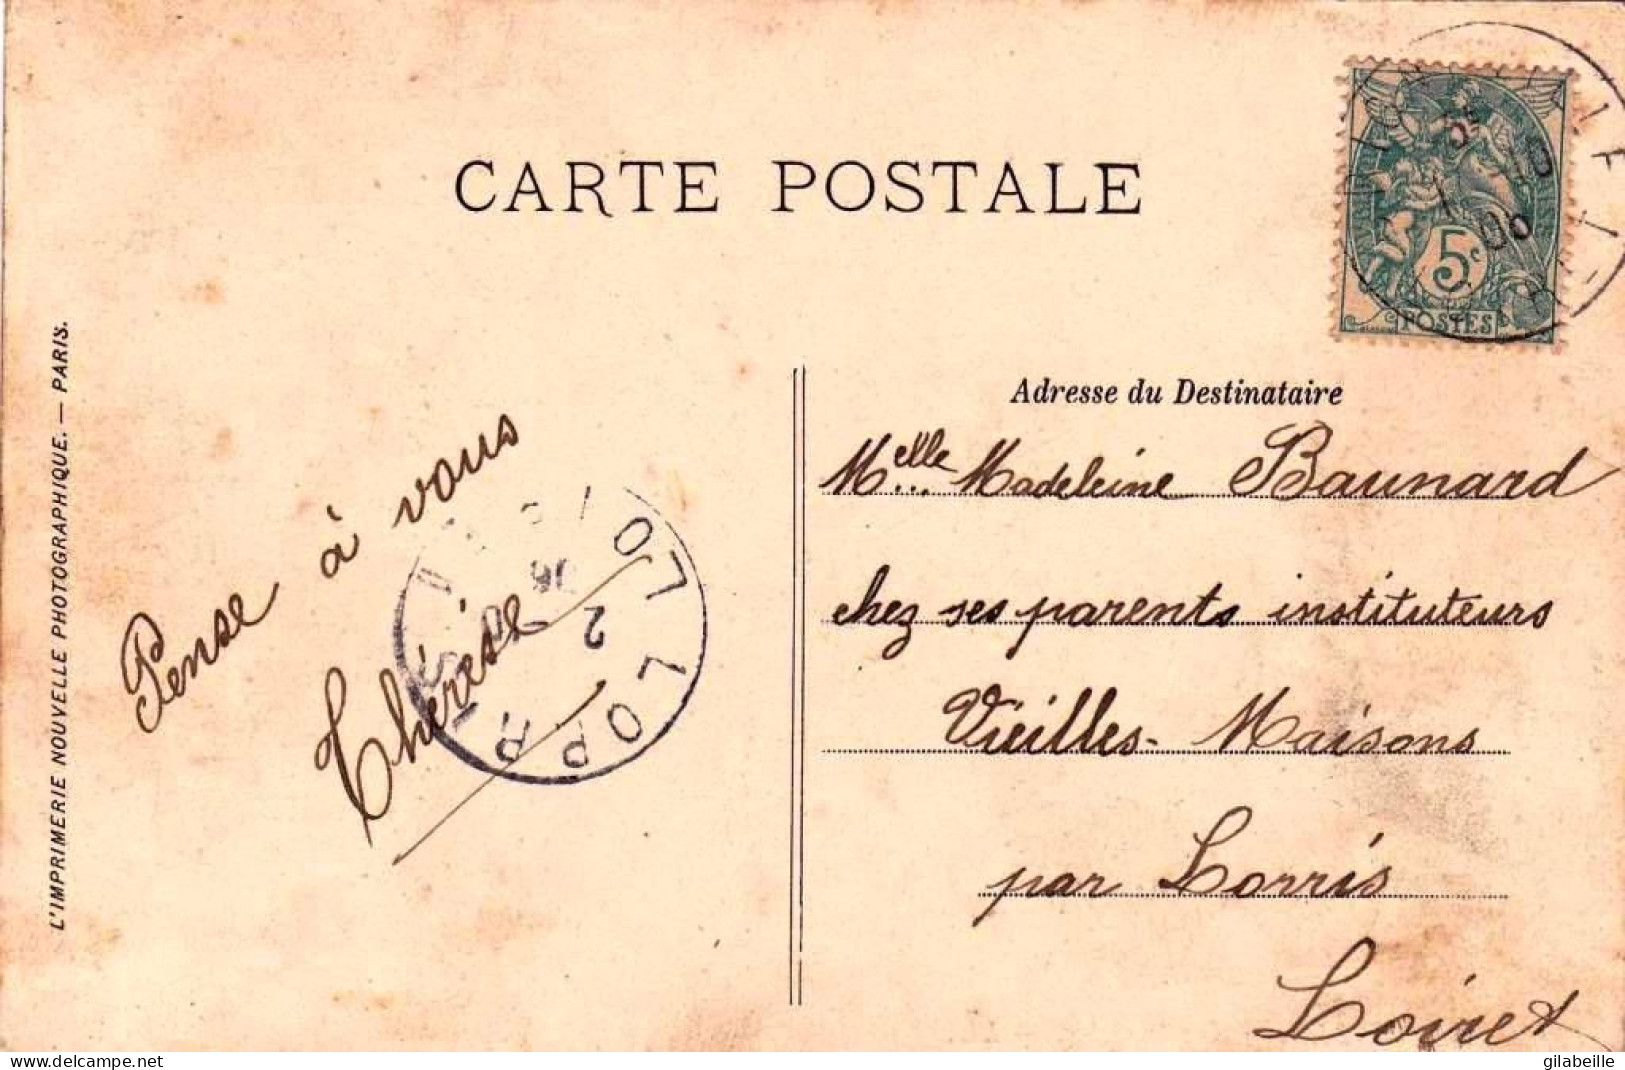 CARTE POSTALE
5c
POSTES
Adresse du Destinataire
Melle Madeleine Baunard
chez ses parents instituteurs
Vieilles-Maisons
par Lorris
Loiret
Pense à vous
Thérèse
L'IMPRIMERIE NOUVELLE PHOTOGRAPHIQUE. — PARIS.
delcampe.net
gilabeille